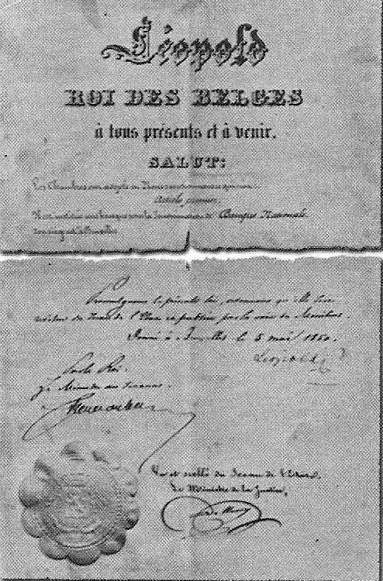 Léopold
ROI DES BELGES
à tous présents et à venir.
SALUT:
Les Chambres ont adopté et Nous sanctionnons ce qui suit:
Article premier.
Il est institué une banque sous la dénomination de Banque Nationale.
Son siège est à Bruxelles
Promulguons la présente loi, ordonnons qu'elle soit
revêtue du Sceau de l'Etat et publiée par la voie du Moniteur.
Donné à Bruxelles le 5 mai 1850.
Léopold
Par le Roi:
Le Ministre des Finances.
Vu et scellé du Sceau de l'Etat.
Le Ministre de la Justice,